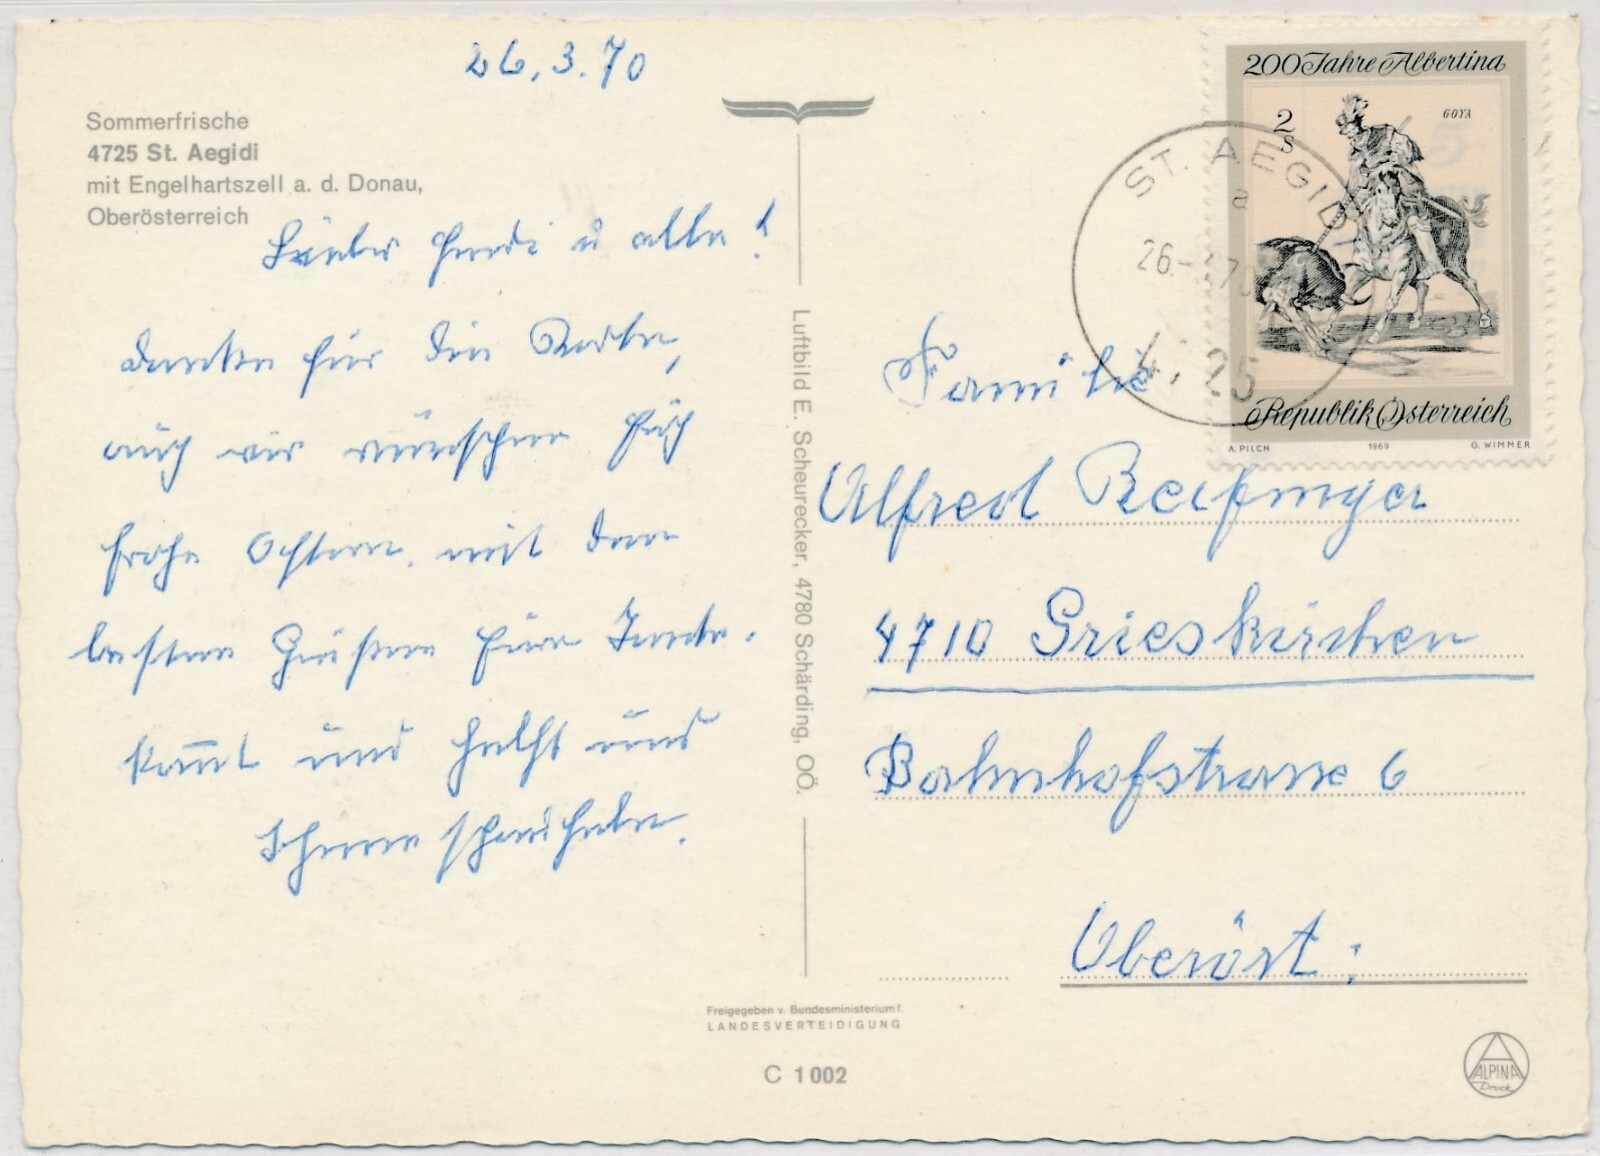 26.3.70
Sommerfrische
4725 St. Aegidi
mit Engelhartszell a. d. Donau,
Oberösterreich
Lieber Fredi u alle!
danke für die Karte,
auch wir wünschen Euch
frohe Ostern. mit den
besten Grüßen Eure Tante.
kommt und helft uns
Luftbild E. Scheurecker, 4780 Schärding, OÖ.
Freigegeben v. Bundesministerium f.
LANDESVERTEIDIGUNG
C 1 002
200 Jahre Albertina
2 S
GOYA
Republik Österreich
A. PILCH 1969 G. WIMMER
ST. AEGIDI
a
26.-3.70
4725
Familie
Alfred
4710 Grieskirchen
Bahnhofstrasse 6
Oberöst:
ALPINA
Druck